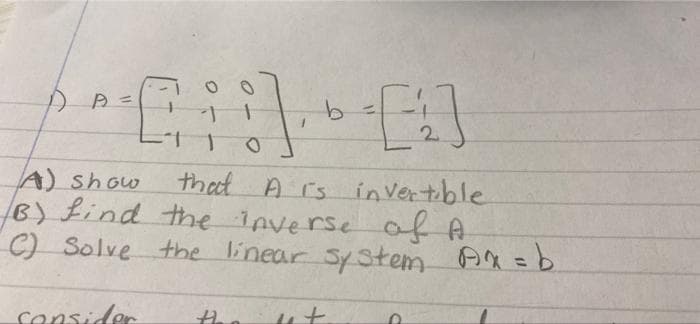 1) A = [ -1 0 0
1 -1 1 , b = [ 1
-1
-1 1 0 ] 2 ]
A) show that A is invertible
B) find the inverse of A
C) Solve the linear system Ax = b
consider the